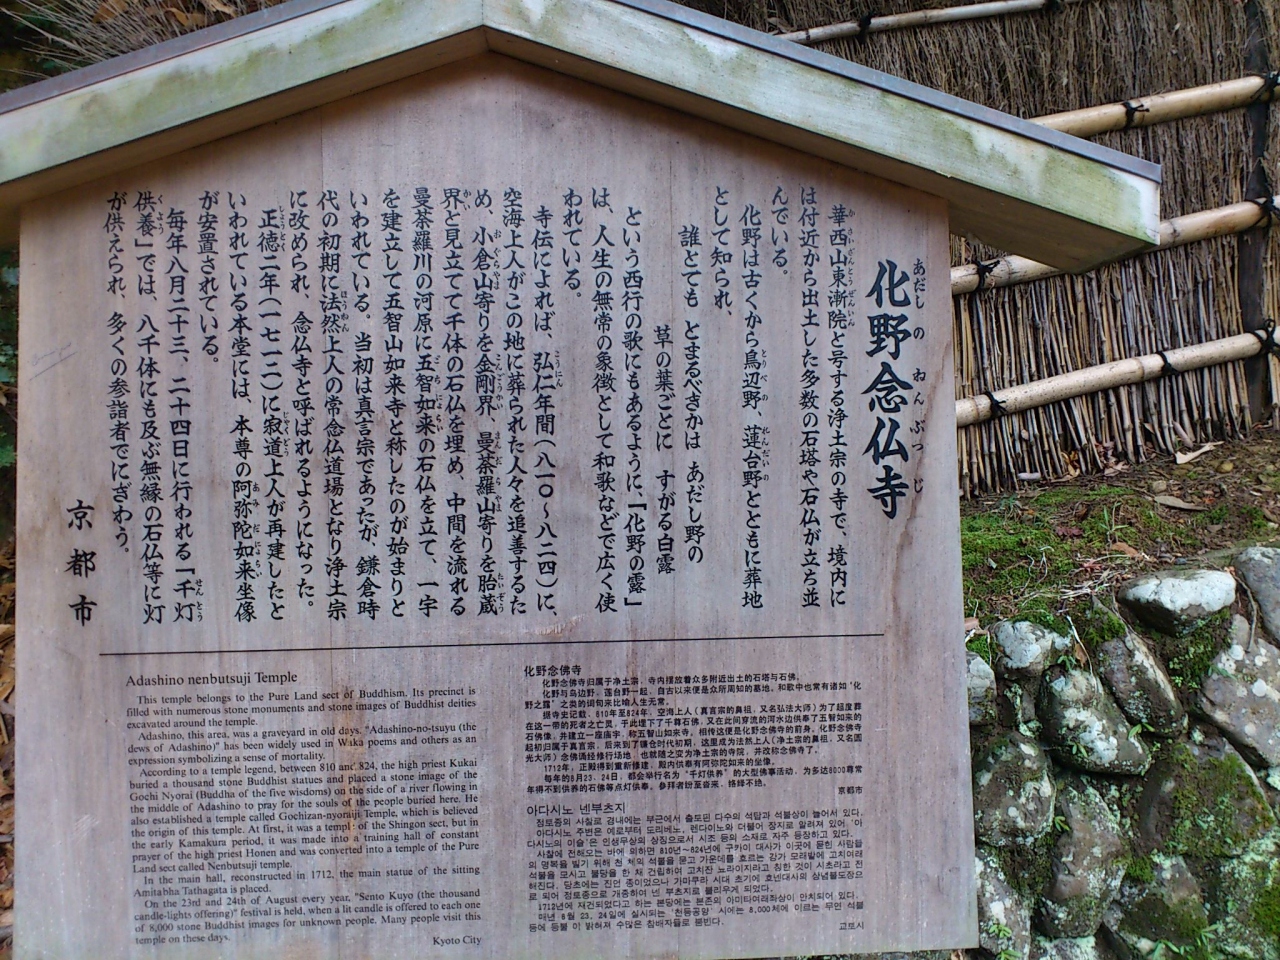 化野念仏寺
華西山東漸院と号する浄土宗の寺で、境内に
は付近から出土した多数の石塔や石仏が立ち並
んでいる。
化野は古くから鳥辺野、蓮台野とともに葬地
として知られ、
誰とても とまるべきかは あだし野の
草の葉ごとに すがる白露
という西行の歌にもあるように、「化野の露」
は、人生の無常の象徴として和歌などで広く使
われている。
寺伝によれば、弘仁年間(八一〇～八二四)に、
空海上人がこの地に葬られた人々を追善するた
め、小倉山寄りを金剛界、曼荼羅山寄りを胎蔵
界と見立てて千体の石仏を埋め、中間を流れる
曼荼羅川の河原に五智如来の石仏を立て、一宇
を建立して五智山如来寺と称したのが始まりと
いわれている。当初は真言宗であたが、鎌倉時
代の初期に法然上人の常念仏道場となり浄土宗
に改められ、念仏寺と呼ばれるようになった。
正徳二年(一七一二)に寂道上人が再建したと
いわれている本堂には、本尊の阿弥陀如来坐像
が安置されている。
毎年八月二十三、二十四日に行われる「千灯
供養」では、八千体にも及ぶ無縁の石仏等に灯
が供えられ、多くの参詣者でにぎわう。
京都市
Adashino nenbutsuji Temple
This temple belongs to the Pure Land sect of Buddhism. Its precinct is
filled with numerous stone monuments and stone images of Buddhist deities
excavated around the temple.
Adashino, this area, was a graveyard in old days. "Adashino-no-tsuyu (the
dews of Adashino)" has been widely used in Waka poems and others as an
expression symbolizing a sense of mortality.
According to a temple legend, between 810 and 824, the high priest Kukai
buried a thousand stone Buddhist statues and placed a stone image of the
Gochi Nyorai (Buddha of the five wisdoms) on the side of a river flowing in
the middle of Adashino to pray for the souls of the people buried here. He
also established a temple called Gochizan-nyoraiji Temple, which is believed
the origin of this temple. At first, it was a temple of the Shingon sect, but in
the early Kamakura period, it was made into a training hall of constant
prayer of the high priest Honen and was converted into a temple of the Pure
Land sect called Nenbutsuji temple.
In the main hall, reconstructed in 1712, the main statue of the sitting
Amitabha Tathagata is placed.
On the 23rd and 24th of August every year, "Sento Kuyo (the thousand
candle-lights offering)" festival is held, when a lit candle is offered to each one
of 8,000 stone Buddhist images for unknown people. Many people visit this
temple on these days.
Kyoto City
化野念佛寺
化野念佛寺归属于净土宗，寺内摆放着众多附近出土的石塔与石佛。
化野与鸟边野、莲台野一起，自古以来便是众所周知的墓地。和歌中也常有诸如"化
野之露"之类的词句来比喻人生无常。
据寺史记载，810年至824年，空海上人（真言宗的鼻祖，又名弘法大师）为了超度葬
在这一带的死者之亡灵，于此埋下了千尊石佛，又在此间穿流的河水边供奉了五智如来的
石佛像，并建立一座庙宇，称五智山如来寺，相传这便是化野念佛寺的前身。化野念佛寺
起初归属于真言宗，后来到了镰仓时代初期，这里成为法然上人（净土宗的鼻祖，又名圆
光大师）念佛诵经修行场地，也就随之变为净土宗的寺院，并改称念佛寺了。
1712年，正殿得到重新修建，殿内供奉有阿弥陀如来的坐像。
每年的8月23、24日，都会举行名为"千灯供养"的大型佛事活动，为多达8000尊常
年得不到供养的石佛等点灯供奉。参拜者纷至沓来，络绎不绝。
京都市
아다시노 넨부츠지
정토종의 사찰로 경내에는 부근에서 출토된 다수의 석탑과 석불상이 늘어서 있다.
아다시노 주변은 예로부터 도리베노, 렌다이노와 더불어 장지로 알려져 있어, '아
다시노의 이슬'은 인생무상의 상징으로서 시조 등의 소재로 자주 등장하고 있다.
사찰에 전해오는 바에 의하면 810년～824년에 구카이 대사가 이곳에 묻힌 사람들
의 명복을 빌기 위해 천 체의 석불을 묻고 가운데를 흐르는 강가 모래밭에 고치여래
석불을 모시고 불당을 한 채 건립하여 고치잔 뇨라이지라고 칭한 것이 시초라고 전
해진다. 당초에는 진언 종이었으나 가마쿠라 시대 초기에 호넨대사의 상념불도장으
로 되어 정토종으로 개종하여 넨 부츠지로 불리우게 되었다.
1712년에 재건되었다고 하는 본당에는 본존의 아미타여래좌상이 안치되어 있다.
매년 8월 23, 24일에 실시되는 '천등공양' 시에는 8,000체에 이르는 무연 석불
등에 등불 이 밝혀져 수많은 참배자들로 붐빈다.
교토시